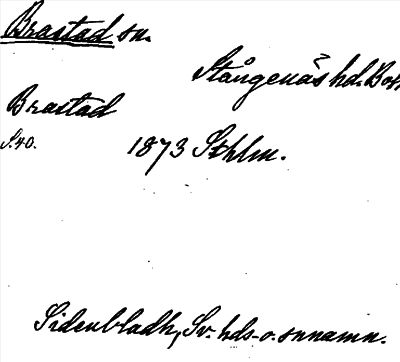 Brastad sn.
Stångenäs hd. Boh
Brastad
S. 40.
1873 Sthlm.
Sidenbladh, Sv. hds- o. snnamn.